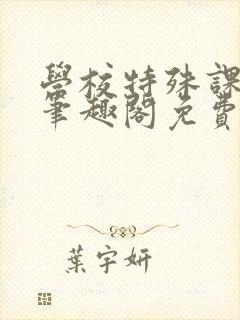 學校特殊課
筆趣閣免費
葉宇妍